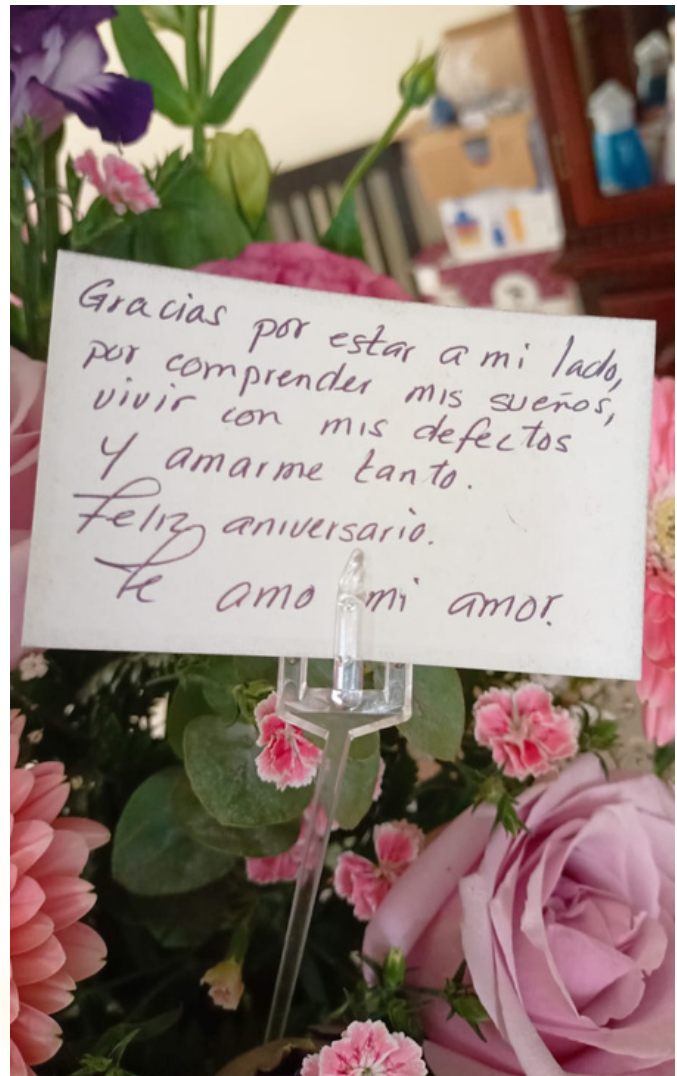 Gracias por estar a mi lado,
por comprender mis sueños,
vivir con mis defectos
y amarme tanto.
Feliz aniversario.
Te amo mi amor.